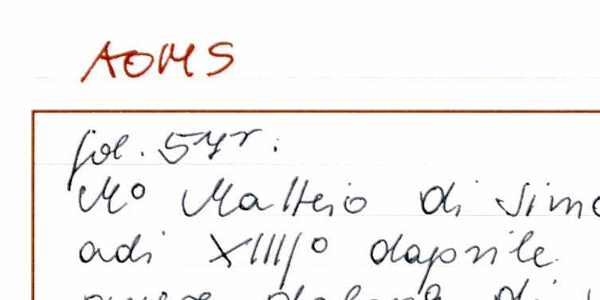 AOMS
fol. 54r.:
Mº Matteio di Simo
adi XIIIIº daprile